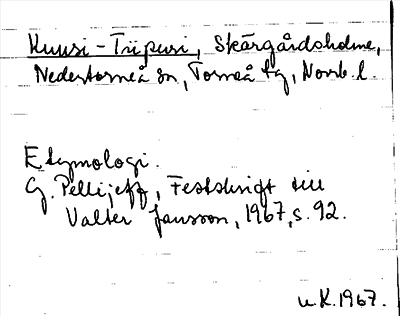 Kuusi-Tiipuri, Skärgårdsholme,
Nedertorneå sn, Torneå tg, Norrb. l.
Etymologi.
G. Pellijeff, Festskrift till
Valter Jansson, 1967, s. 92.
u.K. 1967.